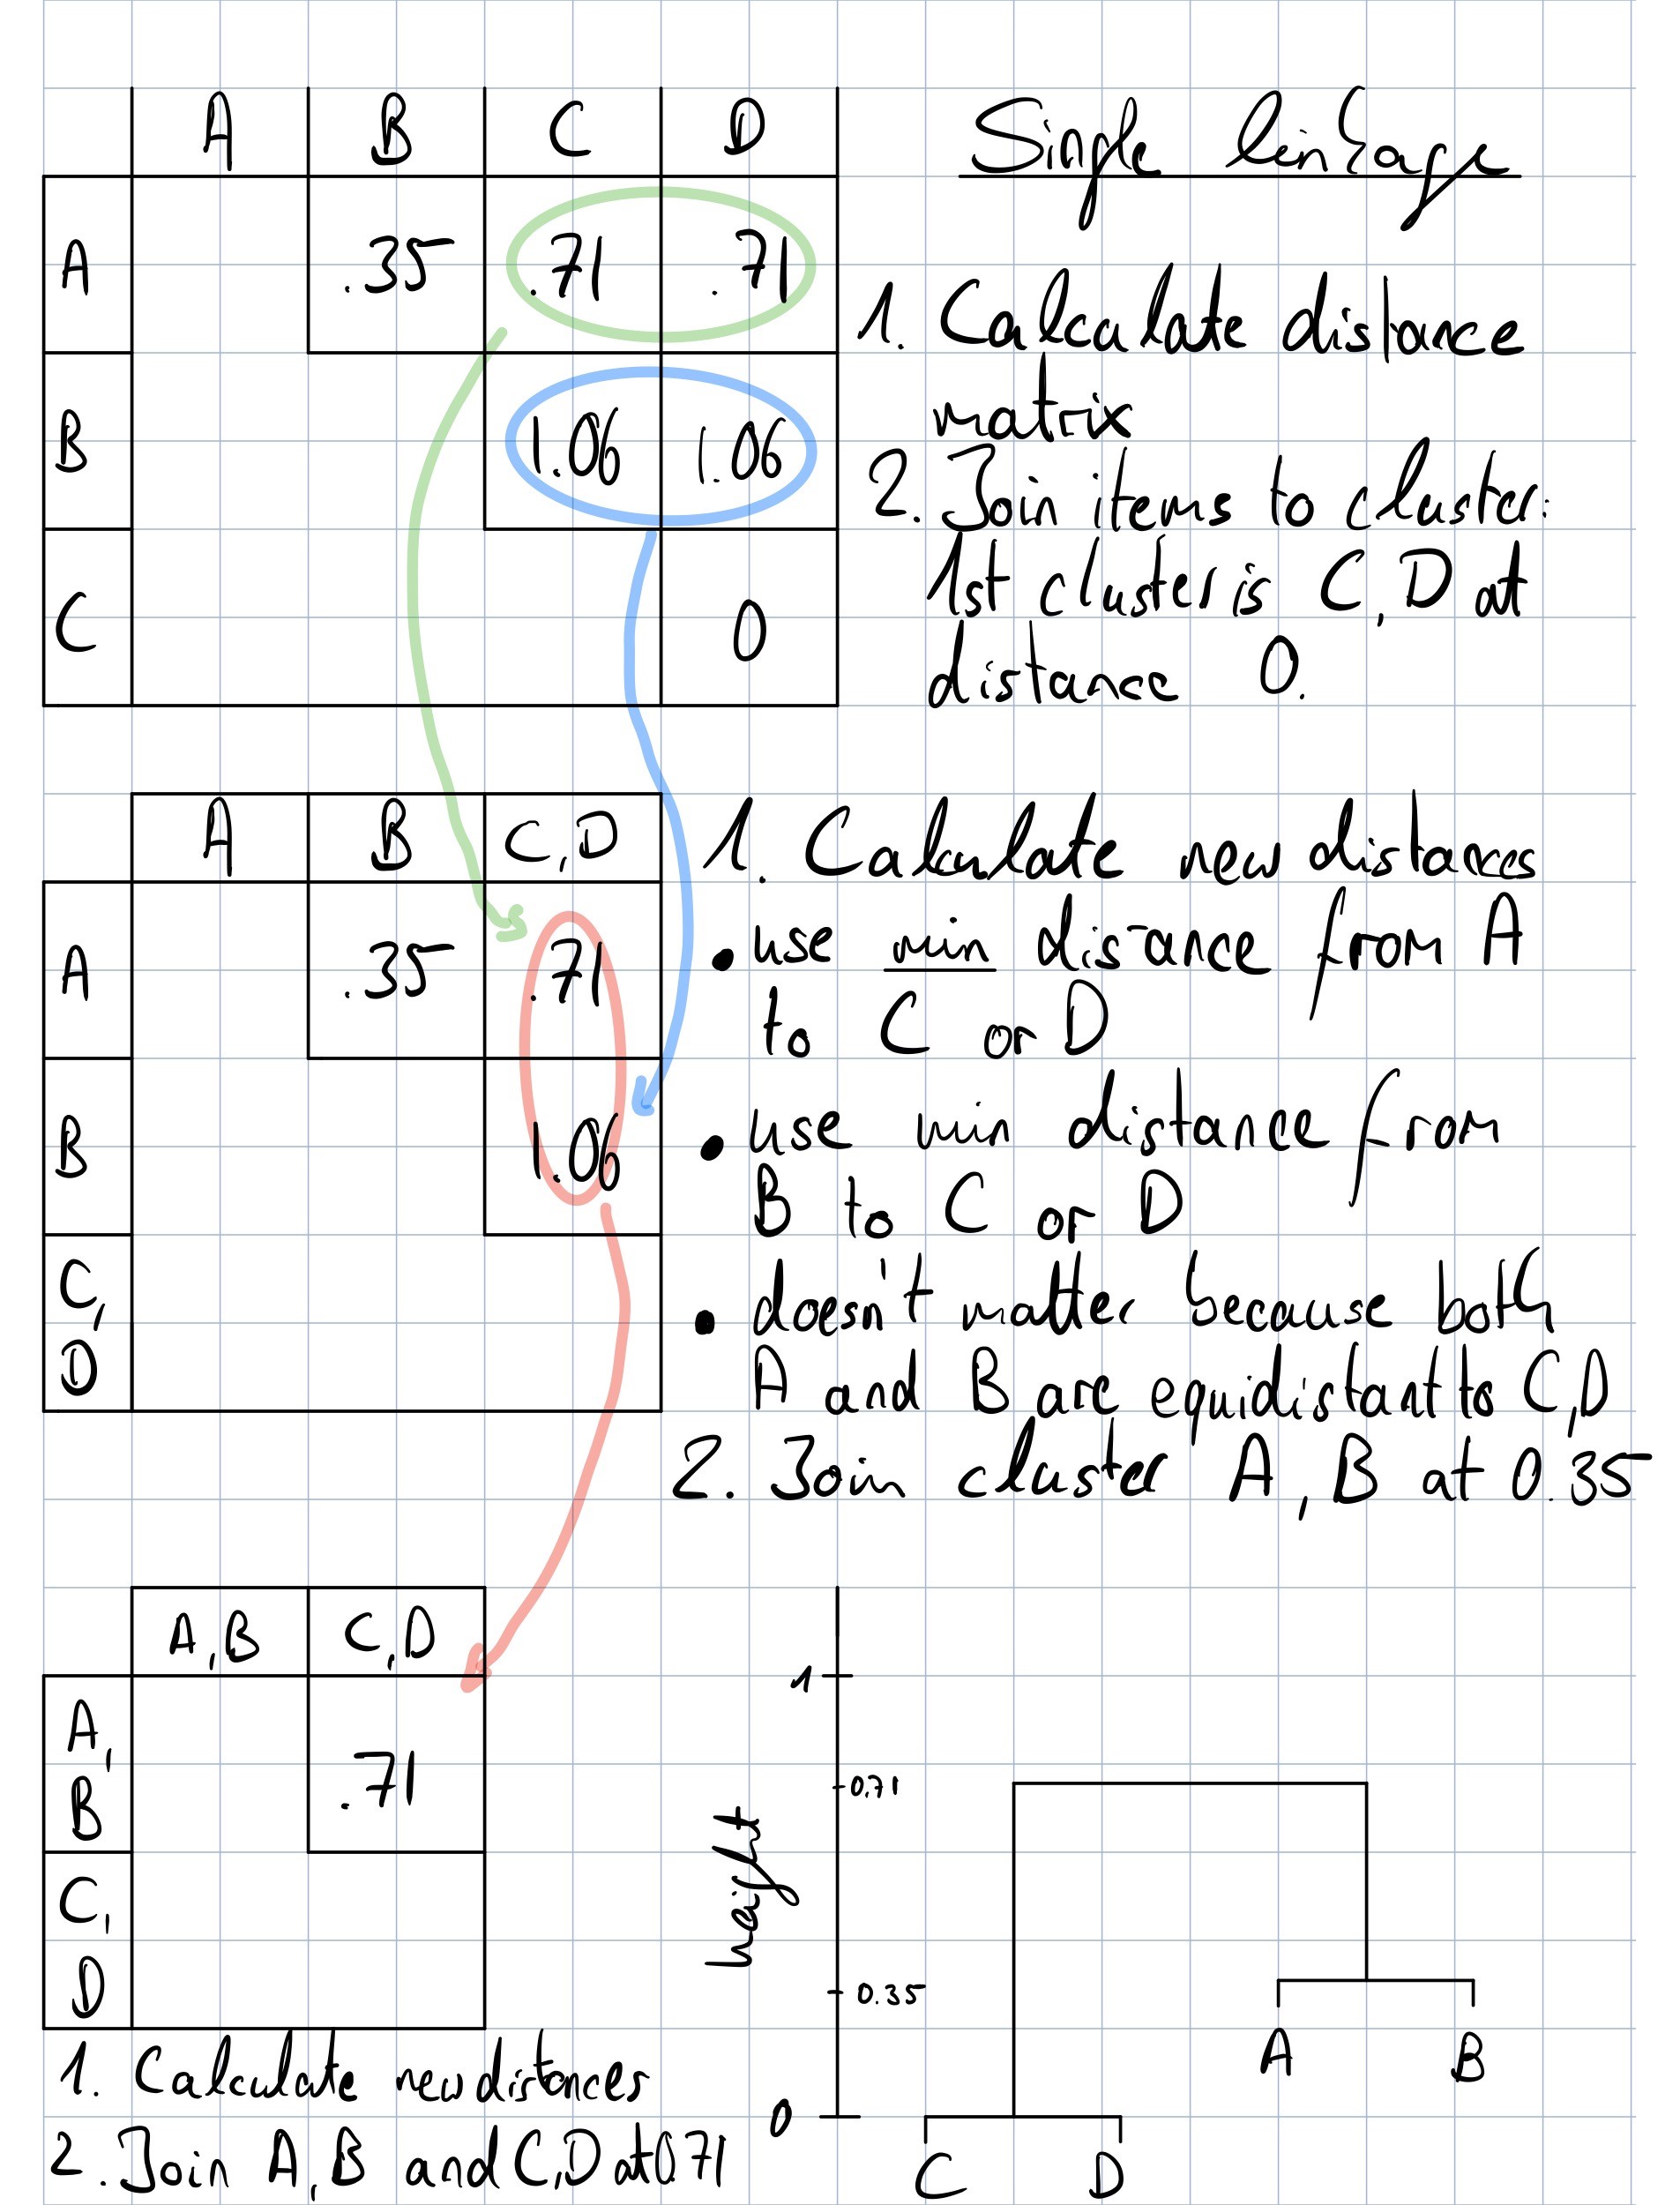 A B C D
Single linkage
A .35 .71 .71
1. Calculate distance
matrix
B 1.06 1.06
2. Join items to cluster:
1st cluster is C,D at
distance 0.
C 0
A B C,D
A .35 .71
B 1.06
C,
D
1. Calculate new distances
• use min disance from A
to C or D
• use min distance from
B to C or D
• doesn't matter because both
A and B are equidistant to C,D
2. Join cluster A,B at 0.35
A,B C,D
A,
B
.71
C,
D
1. Calculate new distances
2. Join A,B and C,D at 0.71
height
1
0,71
0.35
0
A B
C D